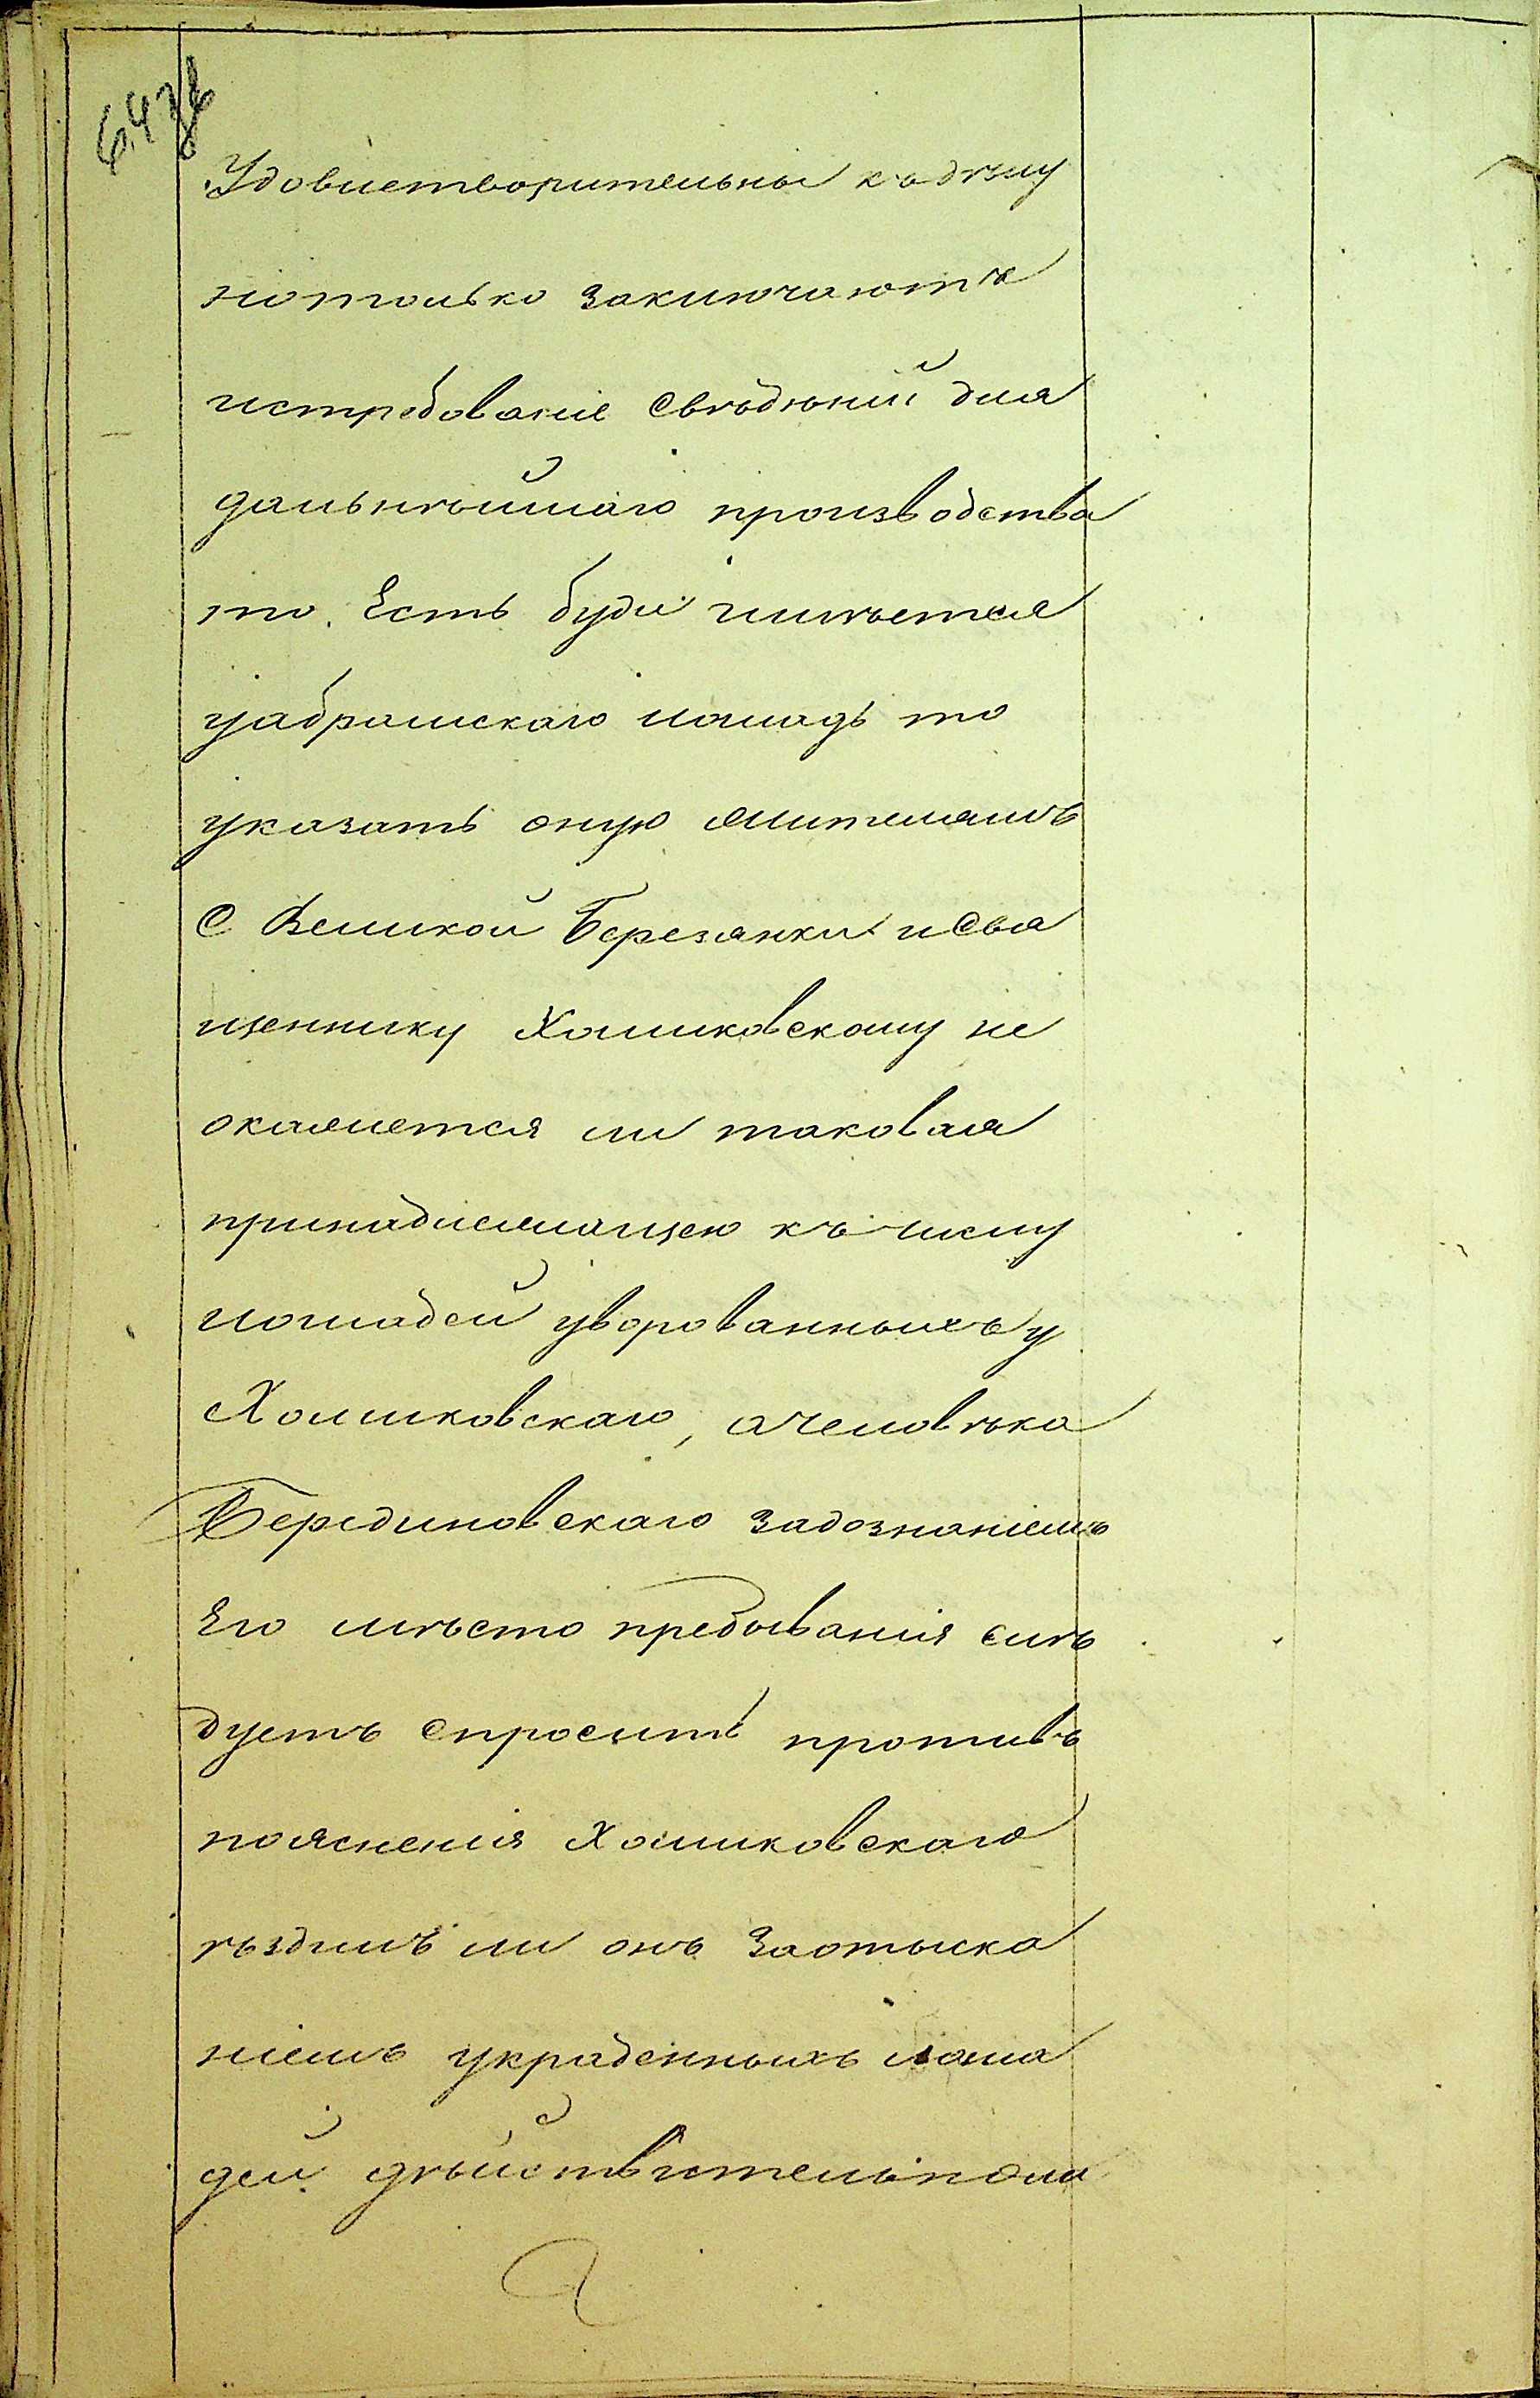 Удовлетворительны къ дѣлу
но только заключаютъ
истребованіе свѣдѣній для
дальнѣйшаго производства
то. Есть буди имѣется
лошадь то
указать оную жителямъ
с Великой Березянки и Свя
щеннику Хомиковскому не
окажется ли таковая
принадлежащею къ числу
лошадей уворованныхъ у
Хомиковскаго, а человѣка
Берединовскаго задознаніемъ
Его мѣсто пребыванія слѣ
дуетъ спросить противъ
пояснения Хомиковскаго
ѣздилъ ли онъ Заотыска
ніемъ украденныхъ лоша
дей дѣйствительно ли